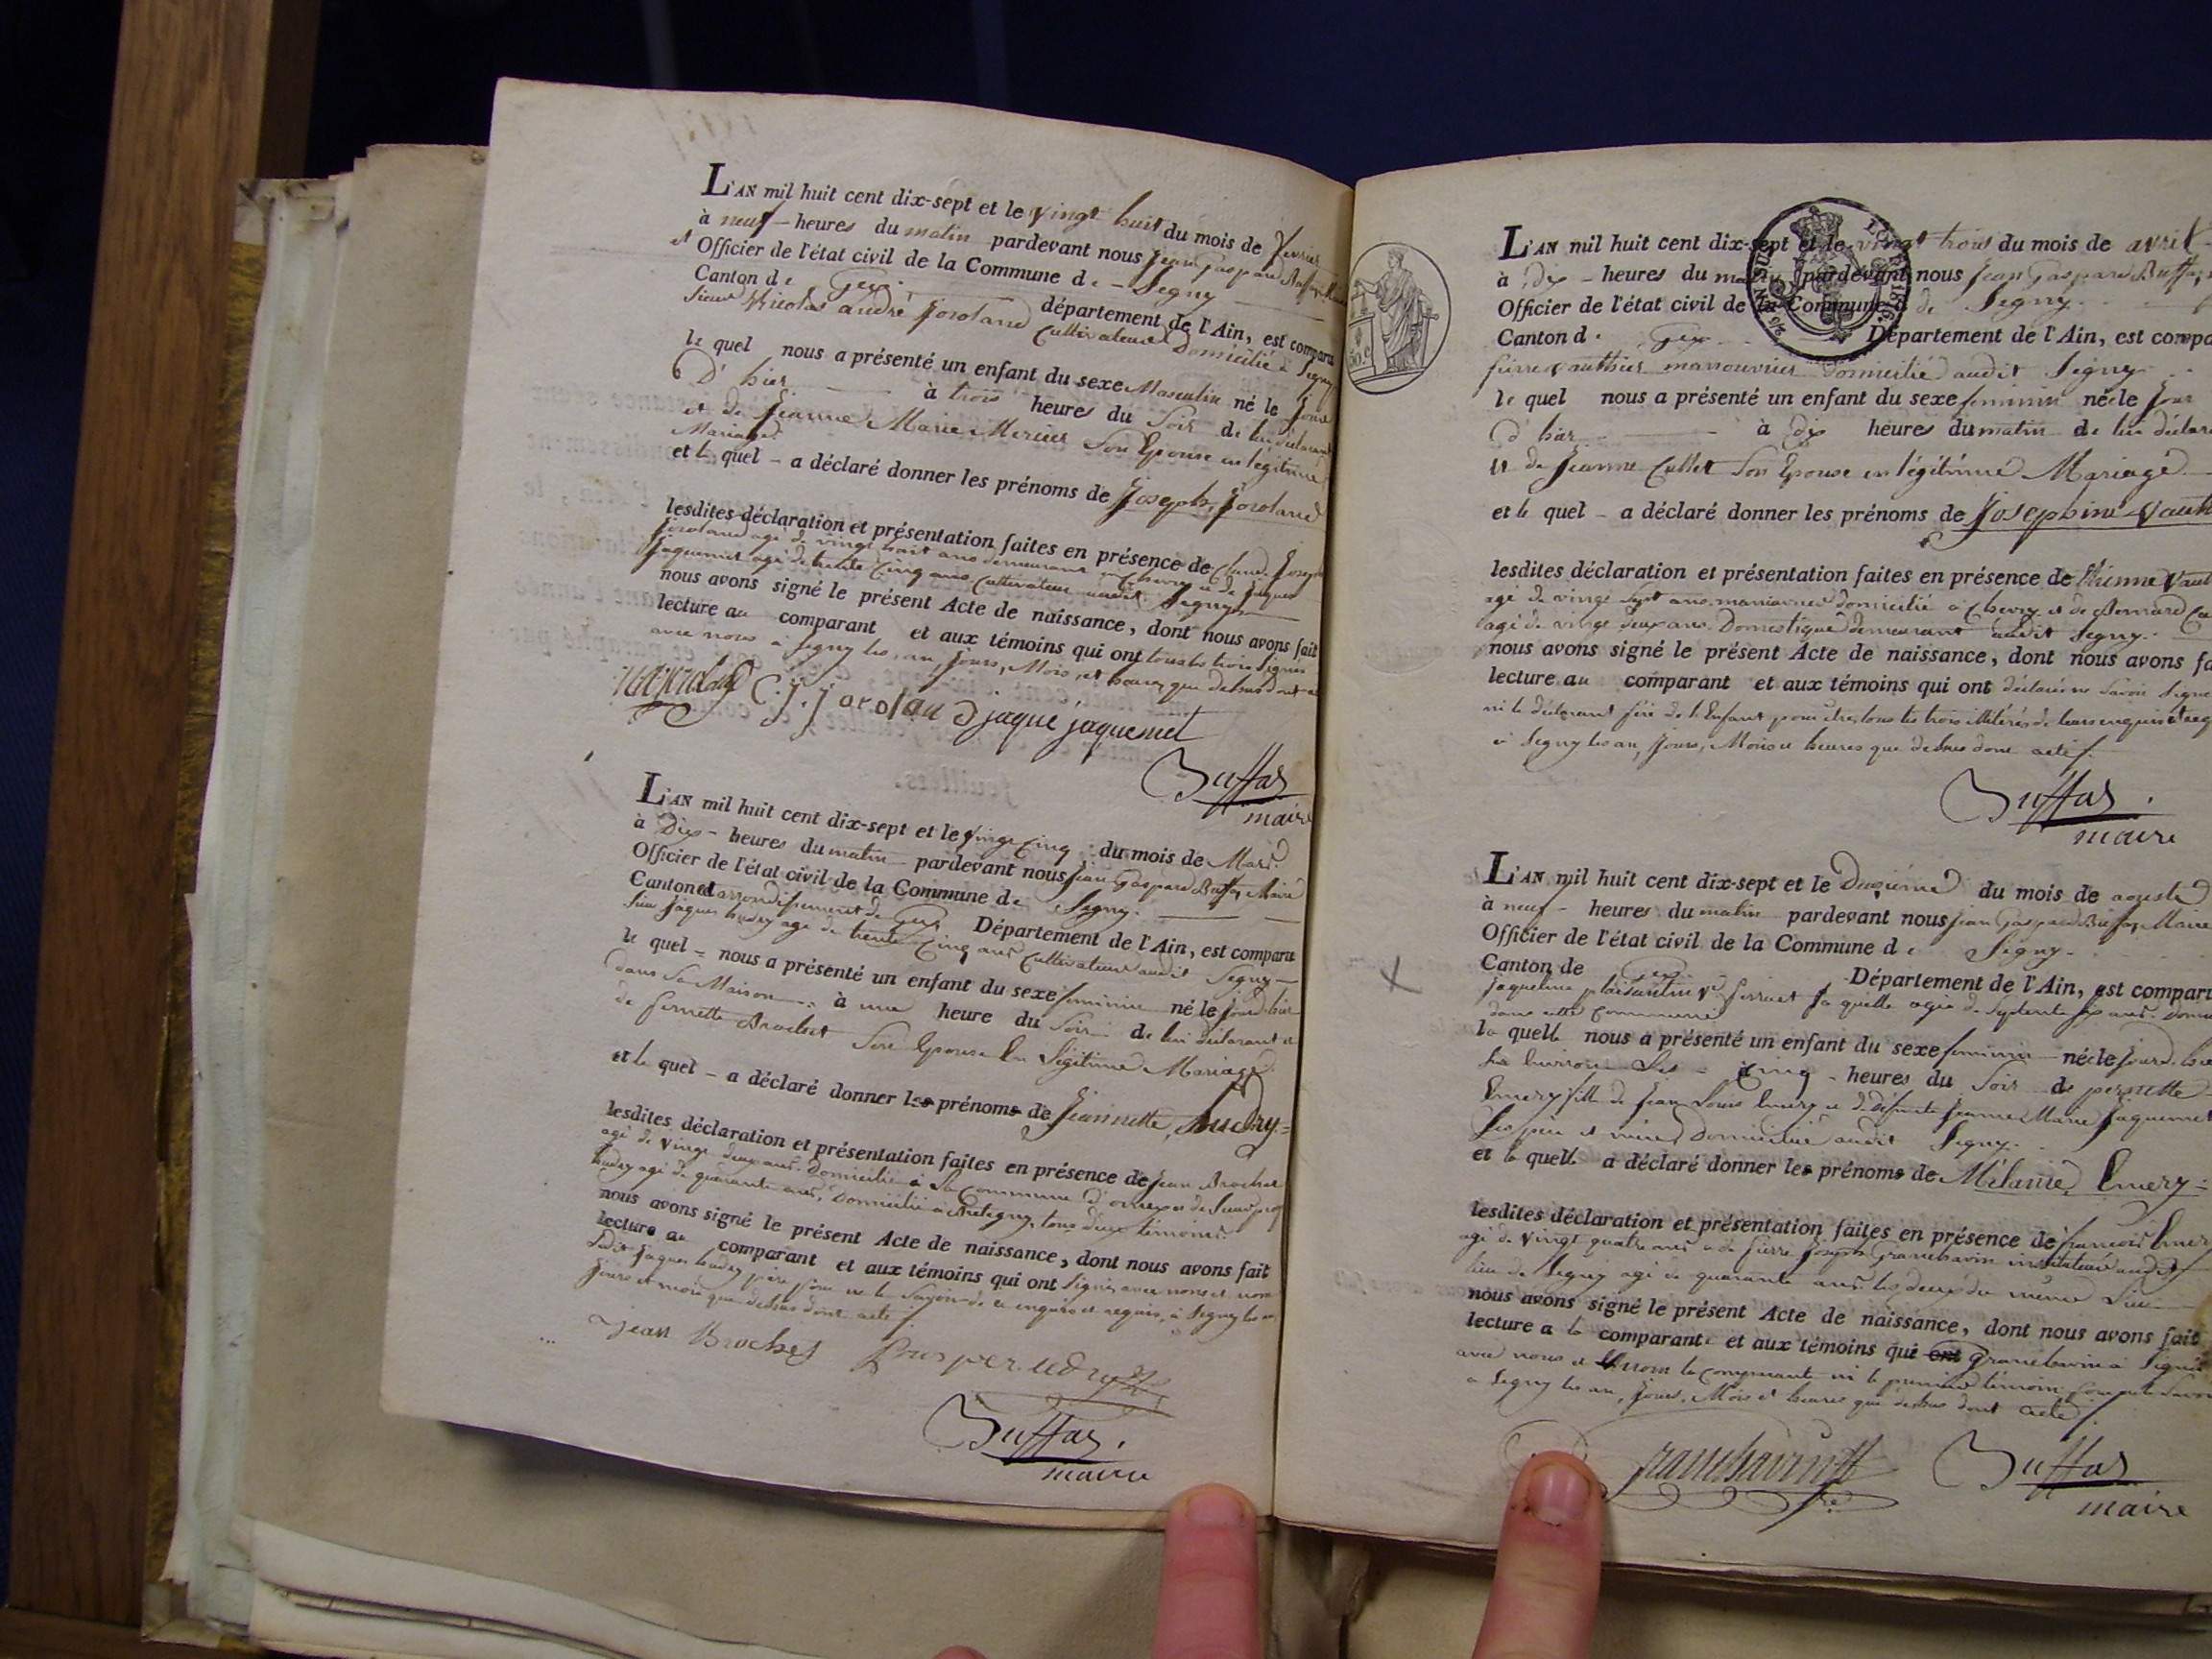 L'AN mil huit cent dix-sept et le vingt huit du mois de fevrier
à neuf - heures du matin pardevant nous Jean Gaspard Buffaz
Officier de l'état civil de la Commune de - Segny
Canton de Gex. département de l'Ain, est comparu
Sieur Nicolas andré Joroland Cultivateur Domicilié à Segny
le quel nous a présenté un enfant du sexe Masculin né le jour
D'hier à trois heures du Soir de lui déclarant
et de Jeanne Marie Mercier Son Epouse en légitime
Mariage
et le quel - a déclaré donner les prénoms de Joseph, Joroland
lesdites déclaration et présentation faites en présence de Claude Joseph
Joroland agé de vingt huit ans demeurant à Chevry et de Jaques
Jaquemet agé de trente Cinq ans Cultivateur audit Segny
nous avons signé le présent Acte de naissance, dont nous avons fait
lecture au comparant et aux témoins qui ont tous les trois Signés
avec nous à Segny les an, Jours, Mois, et heures que dessus dont
C. j. jorolan jaque jaquemet
Buffaz
maire
L'AN mil huit cent dix-sept et le vingt Cinq du mois de Mars
à Dix - heures du matin pardevant nous Jean Gaspard Buffaz Maire
Officier de l'état civil de la Commune de Segny.
Canton et arrondissement de Gex Département de l'Ain, est comparu
Sieur Jaques Audry agé de trente Cinq ans Cultivateur audit Segny
le quel - nous a présenté un enfant du sexe feminin né le jour d'hier
dans Sa Maison à une heure du Soir de lui déclarant et
de pernette Brochet Son Epouse En Légitime Mariage.
et le quel - a déclaré donner les prénoms de Jeannette, Audry =
lesdites déclaration et présentation faites en présence de Jean Brochet
agé de vingt deux ans. Domicilié à La Commune d'ornex et de Sieur
Audry agé de quarante ans, Domicilié à tous deux témoins
nous avons signé le présent Acte de naissance, dont nous avons fait
lecture au comparant et aux témoins qui ont Signés avec nous et non
Ledit Jaques Audry père pour ne le Savoir de ce enquis et requis, à Segny les an
Jours et mois que dessus dont acte
jean Brochet
Buffaz.
maire
L'AN mil huit cent dix-sept et le vingt trois du mois de avril
à Dix - heures du matin pardevant nous Jean Gaspard Buffaz
Officier de l'état civil de la Commune de Segny.
Canton de Gex Département de l'Ain, est compa
pierre vauthier manouvrier domicilié audit Segny
le quel nous a présenté un enfant du sexe feminin né le jour
d'hier à dix heures du matin de lui déclara
et de Jeanne Cullet Son Epouse en légitime Mariage
et le quel - a déclaré donner les prénoms de Josephine Vauth
lesdites déclaration et présentation faites en présence de Etienne Vaut
agé de vingt Sept ans domicilié à Chevry et de Bernard
agé de vingt deux ans. Domestique demeurant audit Segny.
nous avons signé le présent Acte de naissance, dont nous avons fa
lecture au comparant et aux témoins qui ont déclaré ne Savoir Signe
ni le déclarant père de l'Enfant pour etre tous les trois illitérés de leurs enquis et req
à Segny les an, Jours, Mois et heures que dessus dont acte
Buffaz.
maire
L'AN mil huit cent dix-sept et le Deuxieme du mois de aouste
à neuf - heures du matin pardevant nous Jean Gaspard Buffaz Maire
Officier de l'état civil de la Commune de Segny.
Canton de Gex Département de l'Ain, est comparu
dans cette Commune
la quelle nous a présenté un enfant du sexe feminin né le jour d'hie
Cinq - heures du Soir de pernette
Emery fille de Jean Louis Emery et de défunte Jeanne Marie Jaquemet
Ses père et mère, Domiciliée audit Segny.
et la quelle a déclaré donner les prénoms de Mélanie, Emery =
lesdites déclaration et présentation faites en présence de françois Emer
agé de vingt quatre ans et de pierre Joseph Grancharin instituteur audit
lieu de Segny agé de quarante ans les deux du même Lieu
nous avons signé le présent Acte de naissance, dont nous avons fait
lecture a la comparante et aux témoins qui ont Grancharin a Signé
avec nous et non la Comparante ni le premier témoin
a Segny les an, Jours, Mois et heures que dessus dont acte
Buffaz
maire